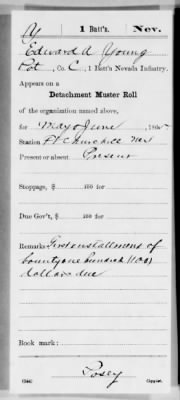 Y | 1 Batt'n. | Nev.
Edward A Young
Pvt, Co. C, 1 Batt'n Nevada Infantry.
Appears on a
Detachment Muster Roll
of the organization named above,
for May & June, 186
Station Ft Churchill Nev
Present or absent Present
Stoppage, $ 100 for
Due Gov't, $ 100 for
Remarks: First installment of
bounty one hundred (100)
dollars due
Book mark:
Posey
(344) Copyist.